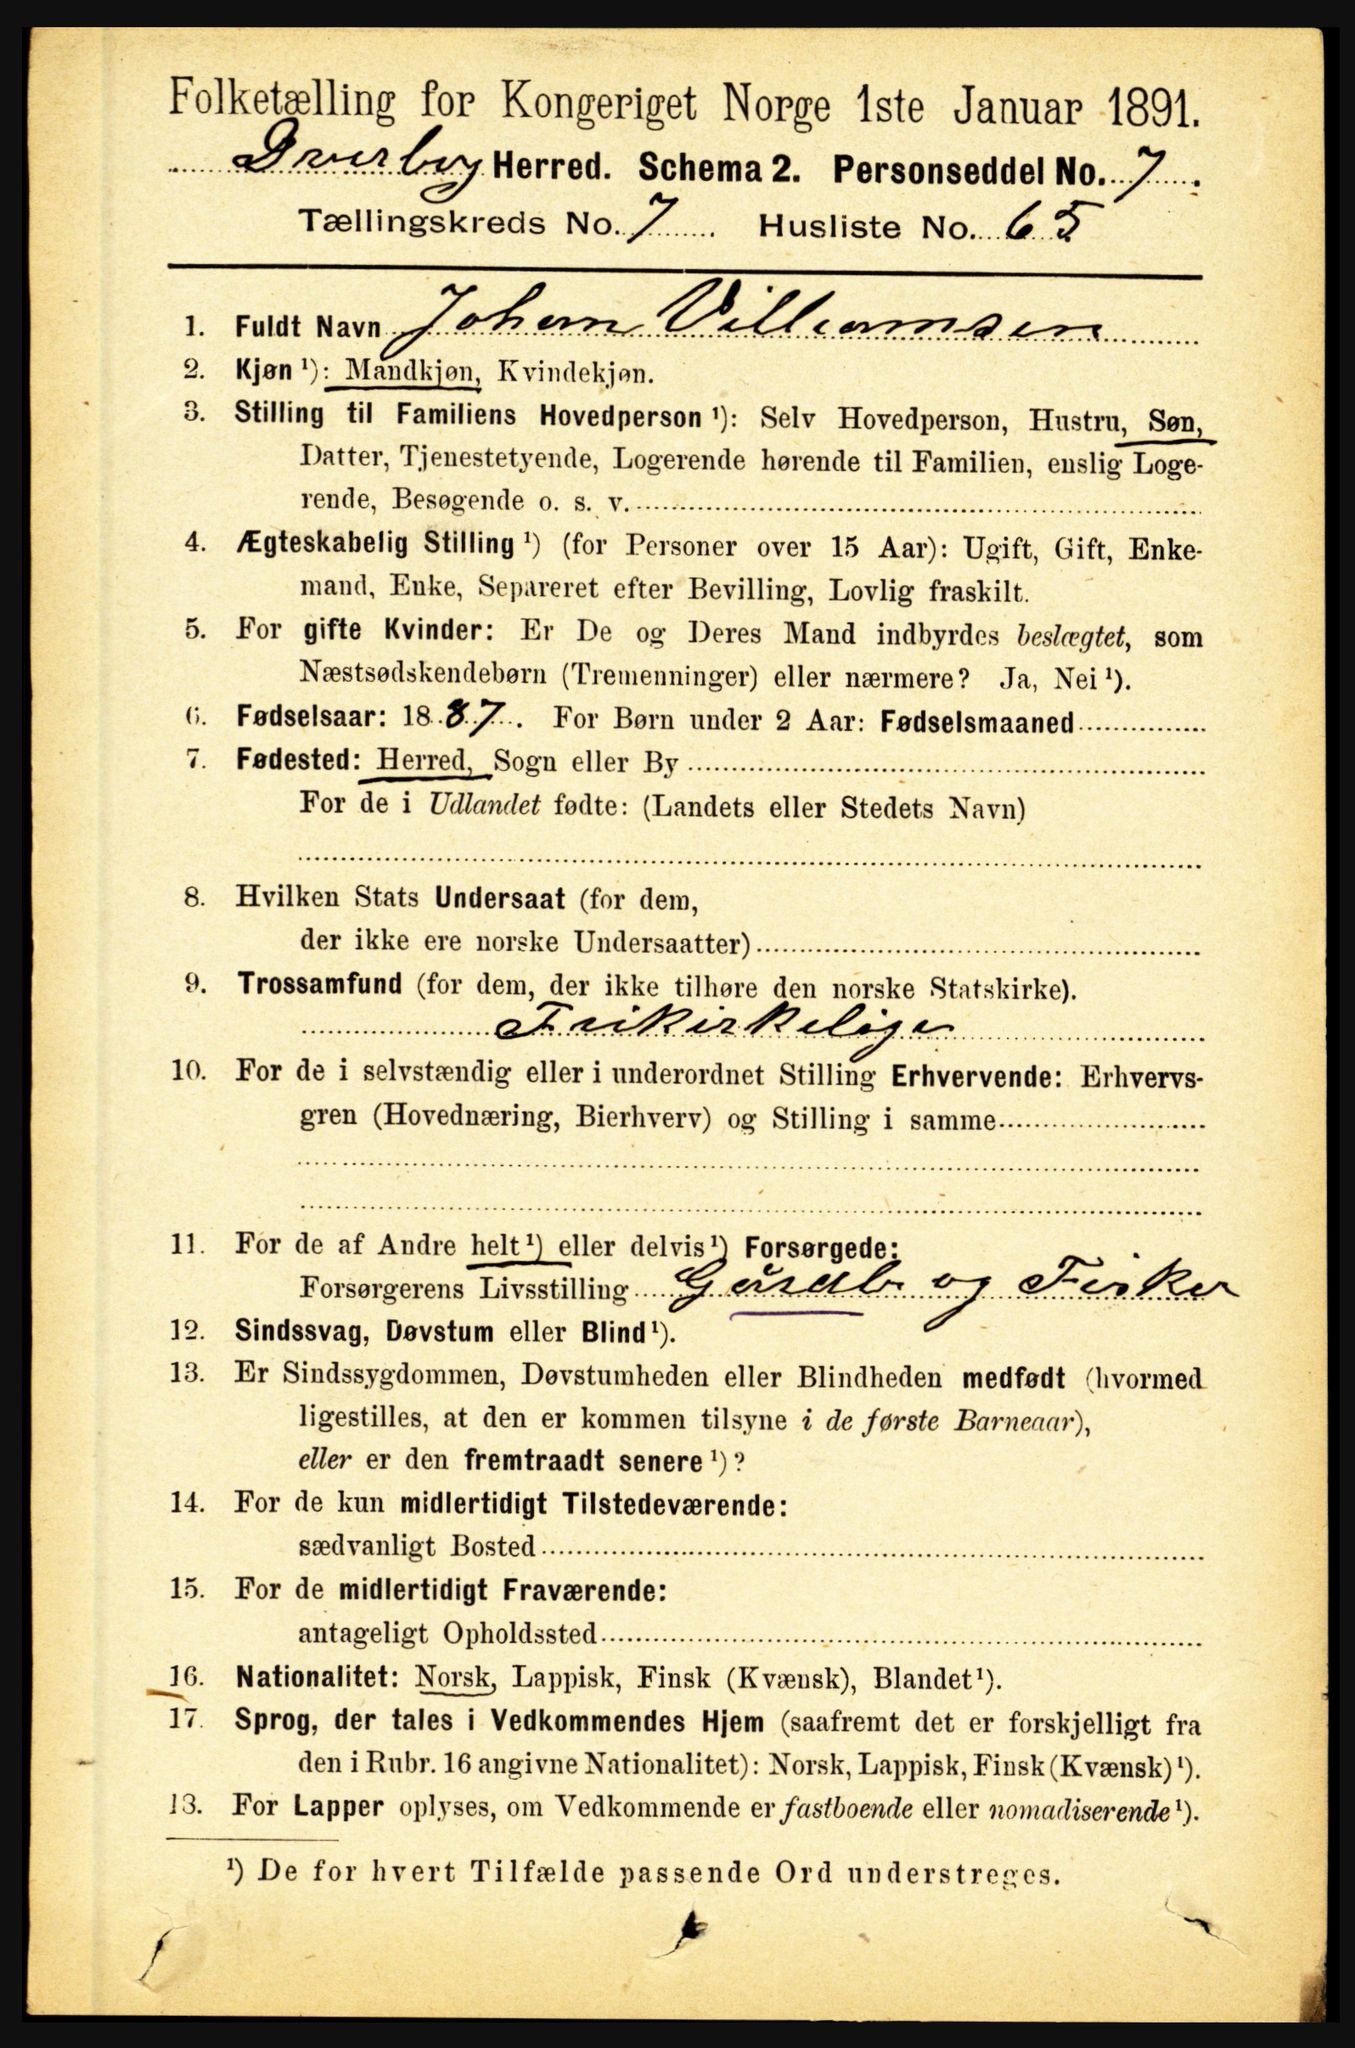 Folketælling for Kongeriget Norge 1ste Januar 1891.
Dverberg Herred. Schema 2. Personseddel No. 7
Tællingskreds No. 7 Husliste No. 65
1. Fuldt Navn Johan Villiamsen
2. Kjøn ¹): Mandkjøn, Kvindekjøn.
3. Stilling til Familiens Hovedperson ¹): Selv Hovedperson, Hustru, Søn,
Datter, Tjenestetyende, Logerende hørende til Familien, enslig Loge-
rende, Besøgende o. s. v.
4. Ægteskabelig Stilling ¹) (for Personer over 15 Aar): Ugift, Gift, Enke-
mand, Enke, Separeret efter Bevilling, Lovlig fraskilt.
5. For gifte Kvinder: Er De og Deres Mand indbyrdes beslægtet, som
Næstsødskendebørn (Tremenninger) eller nærmere? Ja, Nei ¹).
6. Fødselsaar: 1887. For Børn under 2 Aar: Fødselsmaaned
7. Fødested: Herred, Sogn eller By
For de i Udlandet fødte: (Landets eller Stedets Navn)
8. Hvilken Stats Undersaat (for dem,
der ikke ere norske Undersaatter)
9. Trossamfund (for dem, der ikke tilhøre den norske Statskirke).
Frikirkelige
10. For de i selvstændig eller i underordnet Stilling Erhvervende: Erhvervs-
gren (Hovednæring, Bierhverv) og Stilling i samme
11. For de af Andre helt ¹) eller delvis ¹) Forsørgede:
Forsørgerens Livsstilling Gårdb. og Fisker
12. Sindssvag, Døvstum eller Blind ¹).
13. Er Sindssygdommen, Døvstumheden eller Blindheden medfødt (hvormed
ligestilles, at den er kommen tilsyne i de første Barneaar),
eller er den fremtraadt senere ¹)?
14. For de kun midlertidigt Tilstedeværende:
sædvanligt Bosted
15. For de midlertidigt Fraværende:
antageligt Opholdssted
16. Nationalitet: Norsk, Lappisk, Finsk (Kvænsk), Blandet ¹).
17. Sprog, der tales i Vedkommendes Hjem (saafremt det er forskjelligt fra
den i Rubr. 16 angivne Nationalitet): Norsk, Lappisk, Finsk (Kvænsk) ¹).
13. For Lapper oplyses, om Vedkommende er fastboende eller nomadiserende ¹).
¹) De for hvert Tilfælde passende Ord understreges.